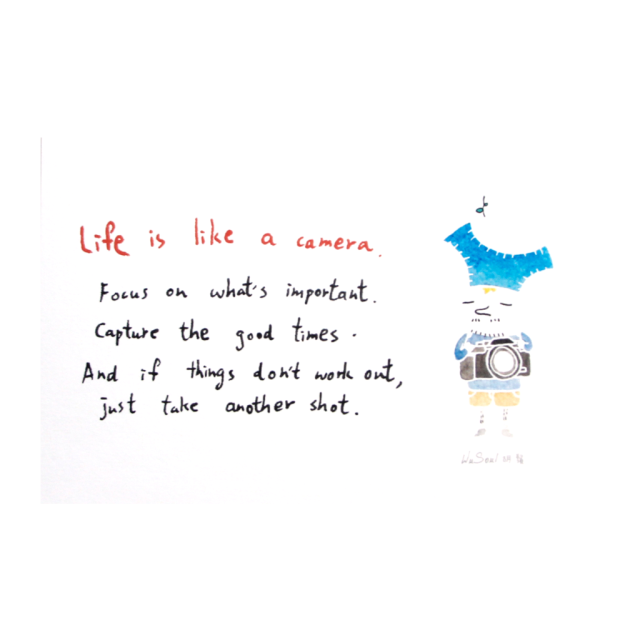 Life is like a camera.
Focus on what's important.
Capture the good times.
And if things don't work out,
just take another shot.